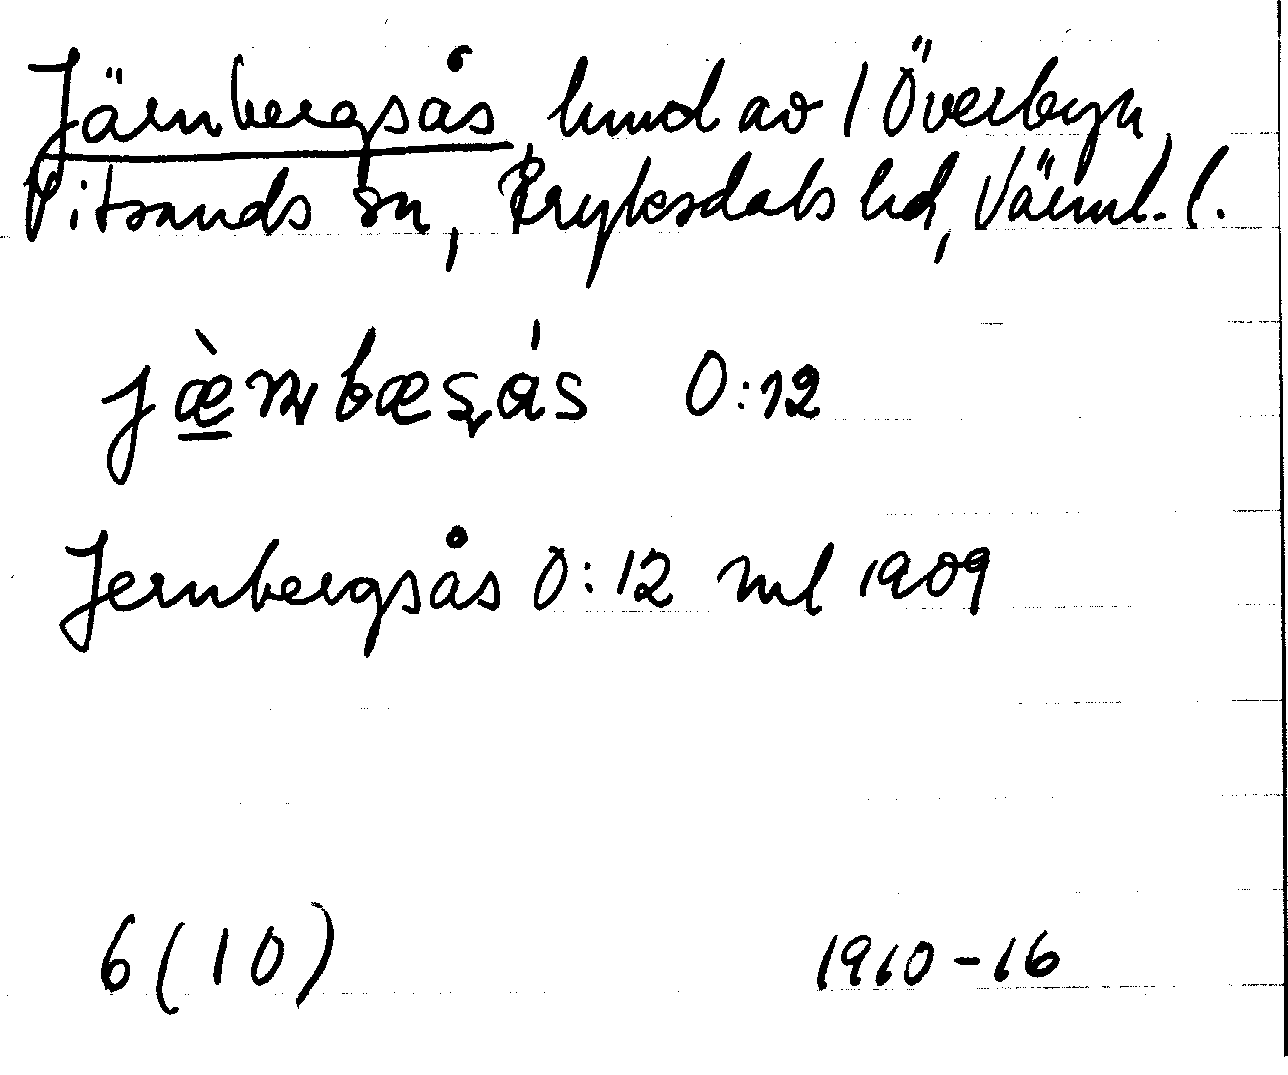 Järnbergsås hmd av 1 Överbyn
Vitsands sn, Fryksdals hd, Värml. l.
jæ̀rnbæsås 0:12
Jernbergsås 0:12 ml 1909
6(10) 1910-16